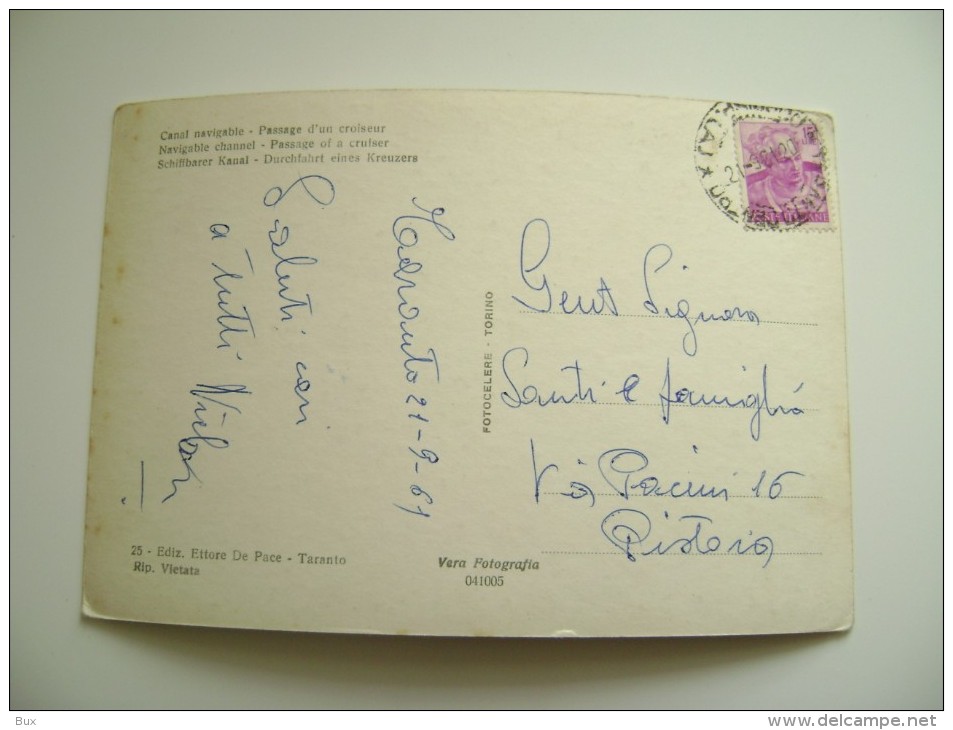 Canal navigable - Passage d'un croiseur
Navigable channel - Passage of a cruiser
Schiffbarer Kanal - Durchfahrt eines Kreuzers
21-9-61
Saluti cari
a tutti
FOTOCELERE - TORINO
Gent Signora
Santi e famiglia
Via Pacini 16
Pistoia
25 - Ediz. Ettore De Pace - Taranto
Rip. Vietata
Vera Fotografia
041005
Bux
delcampe.net